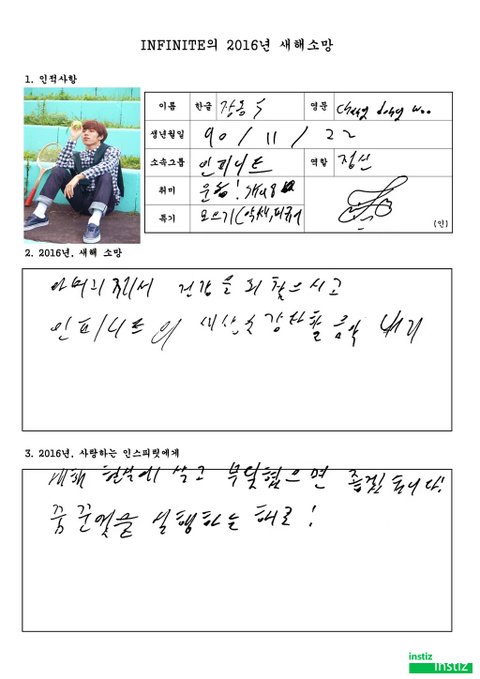 INFINITE의 2016년 새해소망
1. 인적사항
이름 한글 장동우 영문 Chang dong woo
생년월일 90 / 11 / 22
소속그룹 인피니트 역할 정신
취미 운동!
특기 모으기(악세,피규어
(인)
2. 2016년, 새해 소망
아버지 께서 건강을 되 찾으시고
인피니트의 새산숫 강차활 음악 내기
3. 2016년, 사랑하는 인스피릿에게
새해 현실에 살고 부딪혔으면 좋겠습니다!
꿈꾼 것을 실행하는 해로!
instiz
instiz